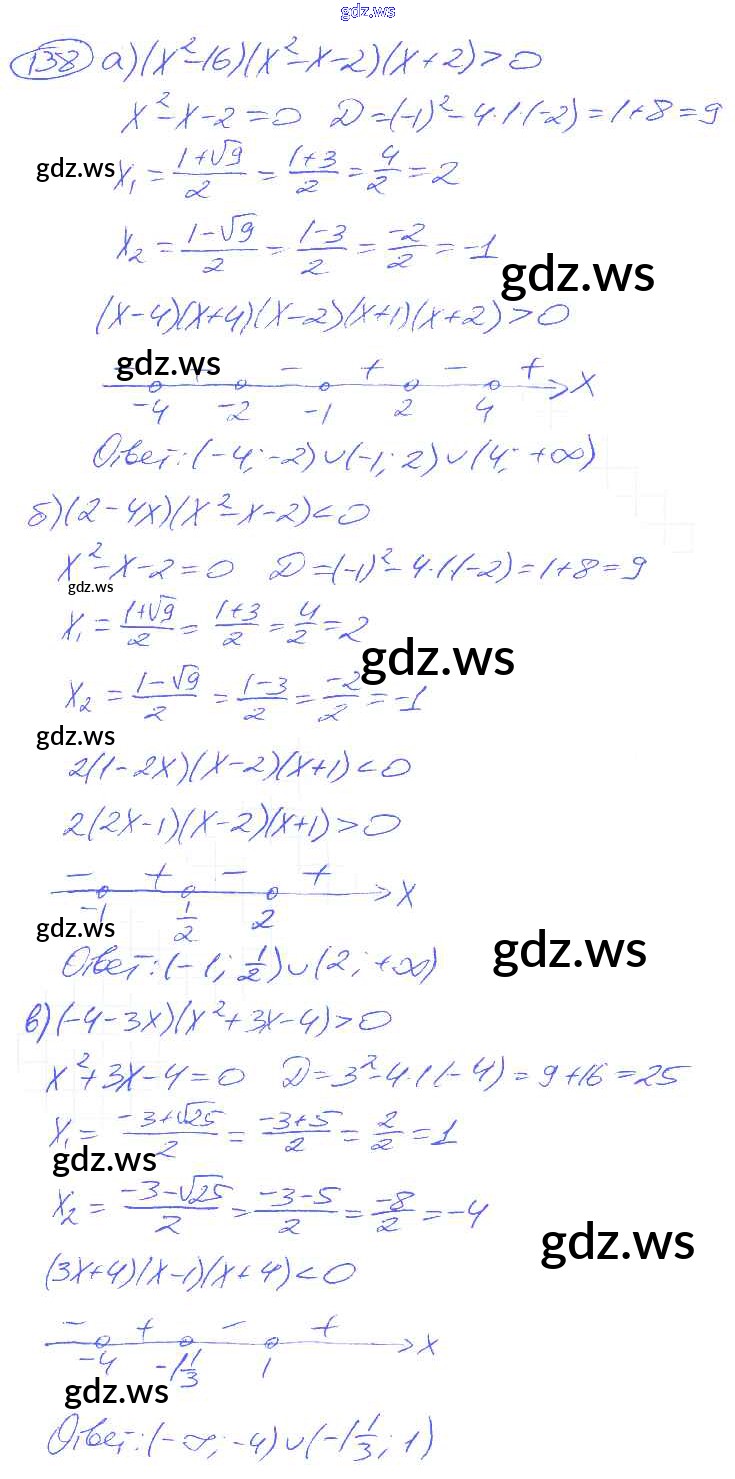 gdz.ws
138 а) (x²-16)(x²-x-2)(x+2)>0
x²-x-2=0 D=(-1)²-4·1·(-2)=1+8=9
gdz.ws
x₁ = (1+√9)/2 = (1+3)/2 = 4/2 = 2
x₂ = (1-√9)/2 = (1-3)/2 = -2/2 = -1
gdz.ws
(x-4)(x+4)(x-2)(x+1)(x+2)>0
gdz.ws
- + - + - + x
-4 -2 -1 2 4
Ответ: (-4; -2)∪(-1; 2)∪(4; +∞)
б) (2-4x)(x²-x-2)<0
x²-x-2=0 D=(-1)²-4·1·(-2)=1+8=9
gdz.ws
x₁ = (1+√9)/2 = (1+3)/2 = 4/2 = 2
gdz.ws
x₂ = (1-√9)/2 = (1-3)/2 = -2/2 = -1
gdz.ws
2(1-2x)(x-2)(x+1)<0
2(2x-1)(x-2)(x+1)>0
- + - + x
-1 1/2 2
gdz.ws
gdz.ws
Ответ: (-1; 1/2)∪(2; +∞)
в) (-4-3x)(x²+3x-4)>0
x²+3x-4=0 D=3²-4·1·(-4)=9+16=25
x₁ = (-3+√25)/2 = (-3+5)/2 = 2/2 = 1
gdz.ws
x₂ = (-3-√25)/2 = (-3-5)/2 = -8/2 = -4
gdz.ws
(3x+4)(x-1)(x+4)<0
- + - + x
-4 -1 1/3 1
gdz.ws
Ответ: (-∞; -4)∪(-1 1/3; 1)